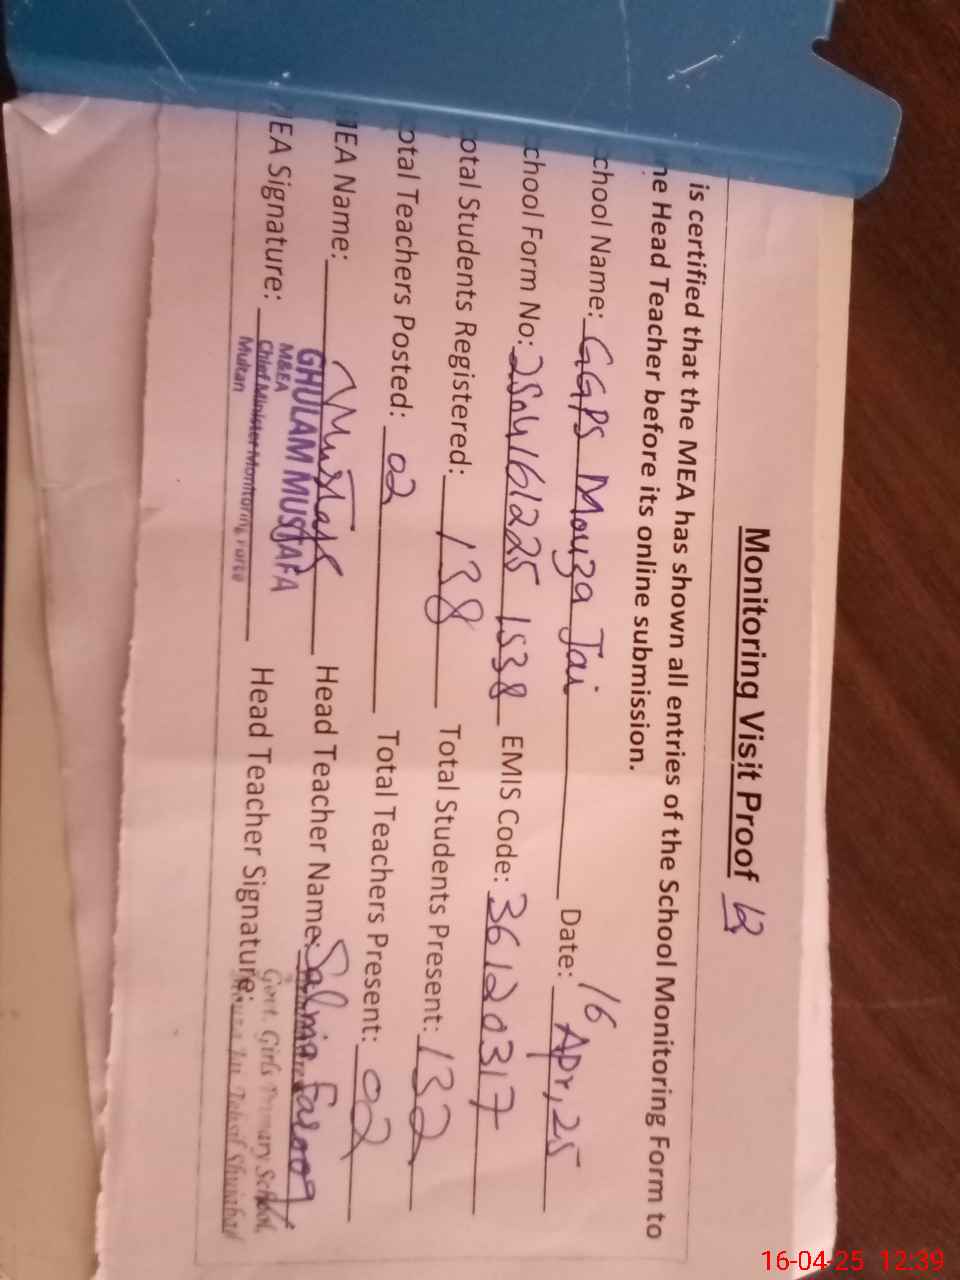 Monitoring Visit Proof 12
is certified that the MEA has shown all entries of the School Monitoring Form to
he Head Teacher before its online submission.
chool Name: GGPS Mouza Jai Date: 16 Apr, 25
chool Form No: 2504161225 1538 EMIS Code: 36120317
otal Students Registered: 138 Total Students Present: 132
otal Teachers Posted: 02 Total Teachers Present: 02
MEA Name: Head Teacher Name: Salma Farooq
GHULAM MUSTAFA
M&EA
MEA Signature: Chief Minister Monitoring Force Head Teacher Signature:
Multan
Govt. Girls Primary School,
Mouza Jai Tehsil Shujabad
16-04-25 12:39